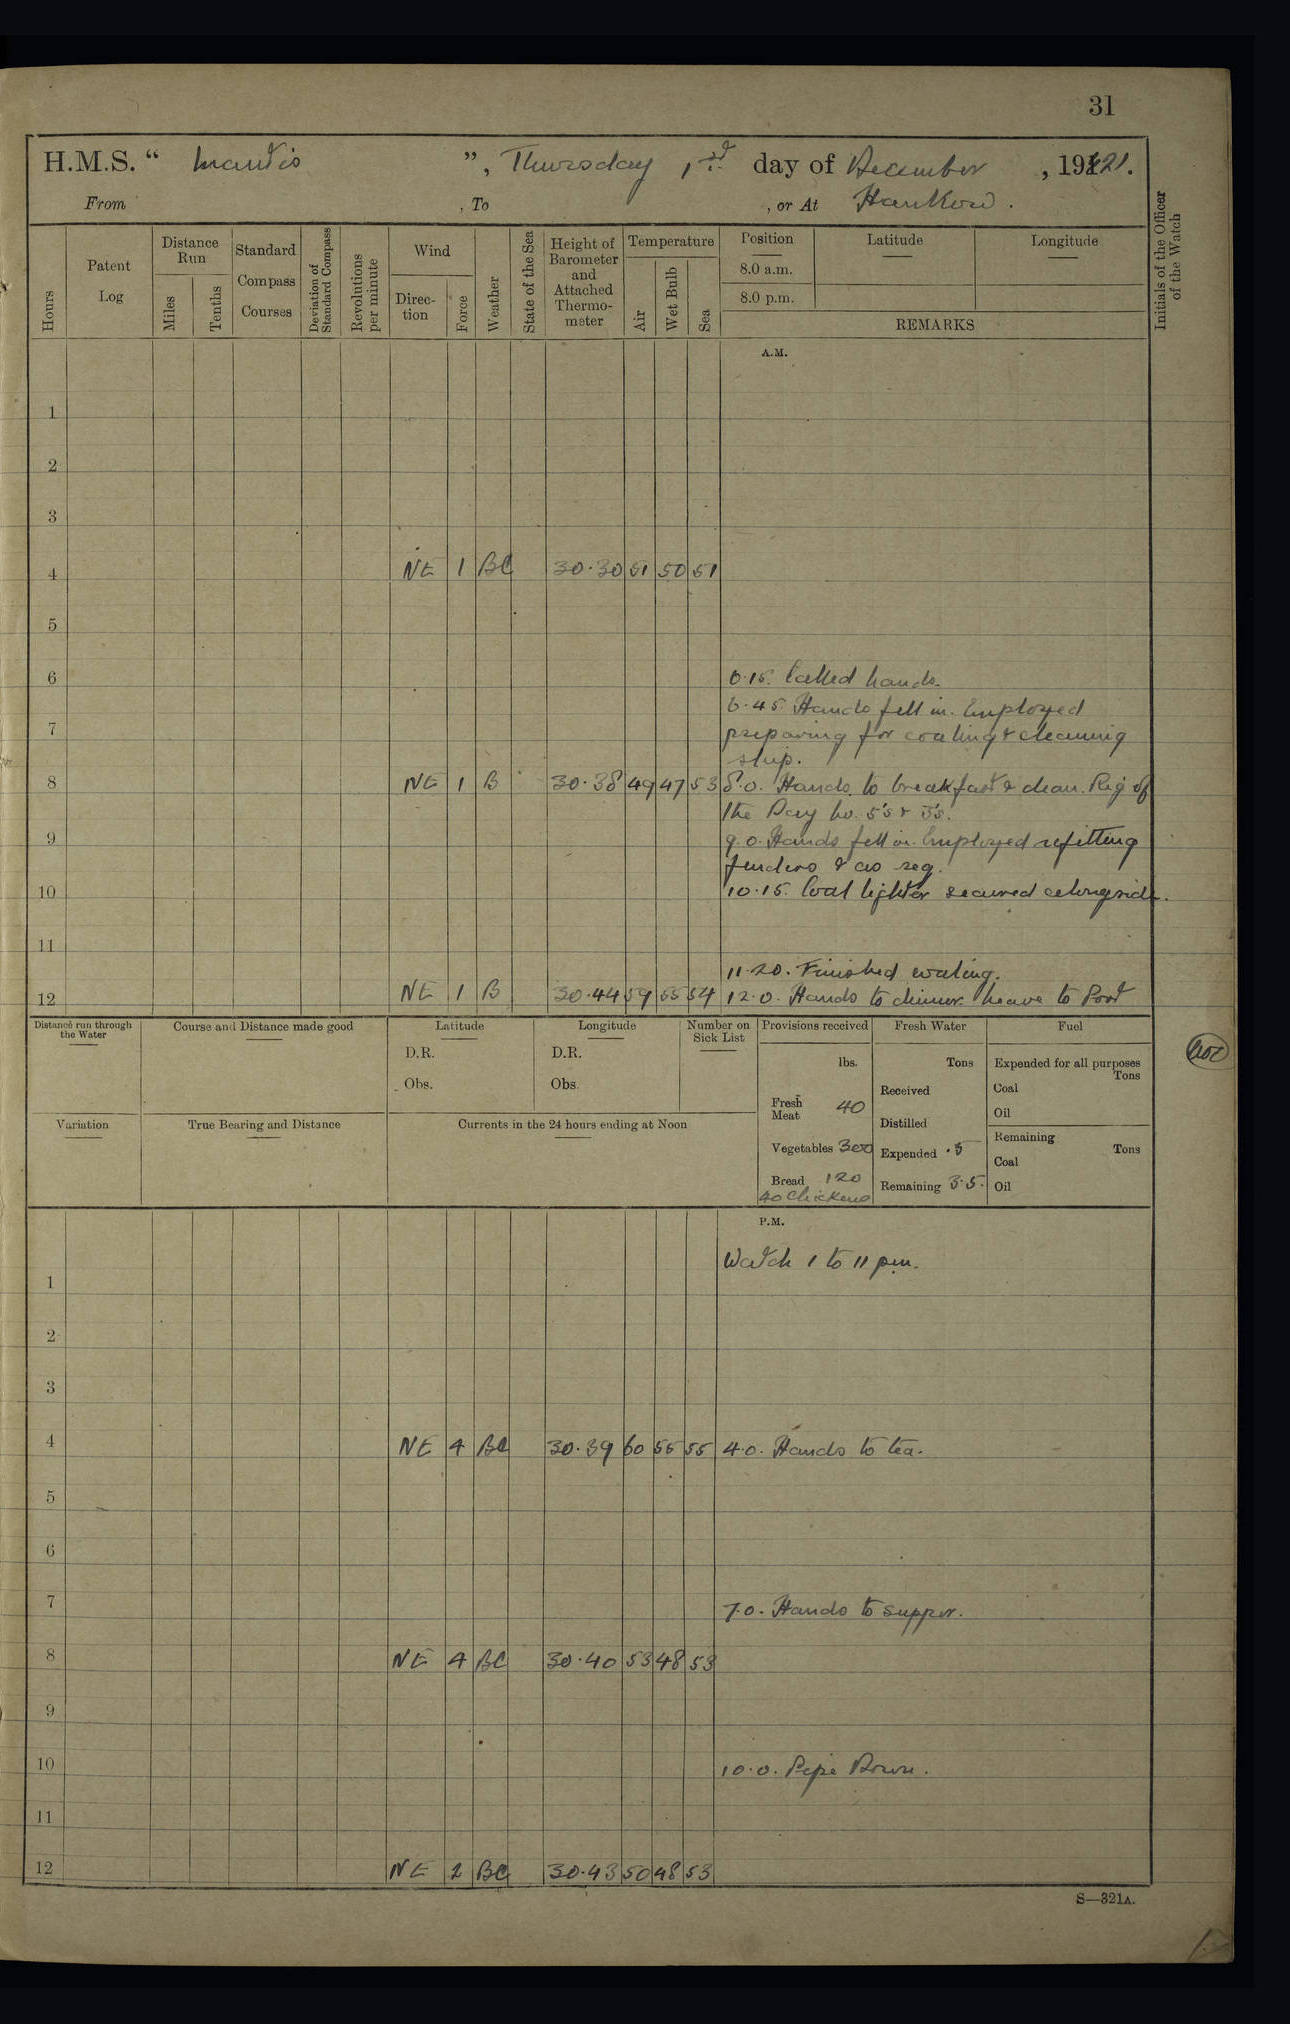 31
H.M.S. " Mantis ", Thursday 1st day of December , 1921.
From , To , or At Hankow.
Hours
Patent Log
Distance Run
Miles
Tenths
Standard Compass Courses
Deviation of Standard Compass
Revolutions per minute
Wind
Direction
Force
Weather
State of the Sea
Height of Barometer and Attached Thermometer
Temperature
Air
Wet Bulb
Sea
Position
8.0 a.m.
8.0 p.m.
Latitude
Longitude
REMARKS
Initials of the Officer of the Watch
A.M.
1
2
3
4 NE 1 BC 30.30 51 50 51
5
6 6.15. Called hands.
6.45. Hands fell in. Employed
7 preparing for coaling & cleaning
ship.
8 NE 1 B 30.38 49 47 53 8.0. Hands to breakfast & clean. Rig of
the Day No. 5's & 3's.
9 9.0. Hands fell in. Employed refitting
fenders & as req.
10 10.15. Coal lighter secured alongside.
11
11.20. Finished coaling.
12 NE 1 B 30.44 59 55 54 12.0. Hands to dinner. Leave to Port
Distance run through the Water
Course and Distance made good
Latitude
D.R.
Obs.
Longitude
D.R.
Obs.
Number on Sick List
Provisions received
lbs.
Fresh Meat 40
Vegetables 300
Bread 120
40 Chickens
Fresh Water
Tons
Received
Distilled
Expended .5
Remaining 3.5.
Fuel
Expended for all purposes
Tons
Coal
Oil
Remaining
Tons
Coal
Oil
Variation
True Bearing and Distance
Currents in the 24 hours ending at Noon
P.M.
Watch 1 to 11 pm.
1
2
3
4 NE 4 BC 30.39 60 55 55 4.0. Hands to tea.
5
6
7 7.0. Hands to supper.
8 NE 4 BC 30.40 53 48 53
9
10 10.0. Pipe Down.
11
12 NE 2 BC 30.43 50 48 53
S—321A.